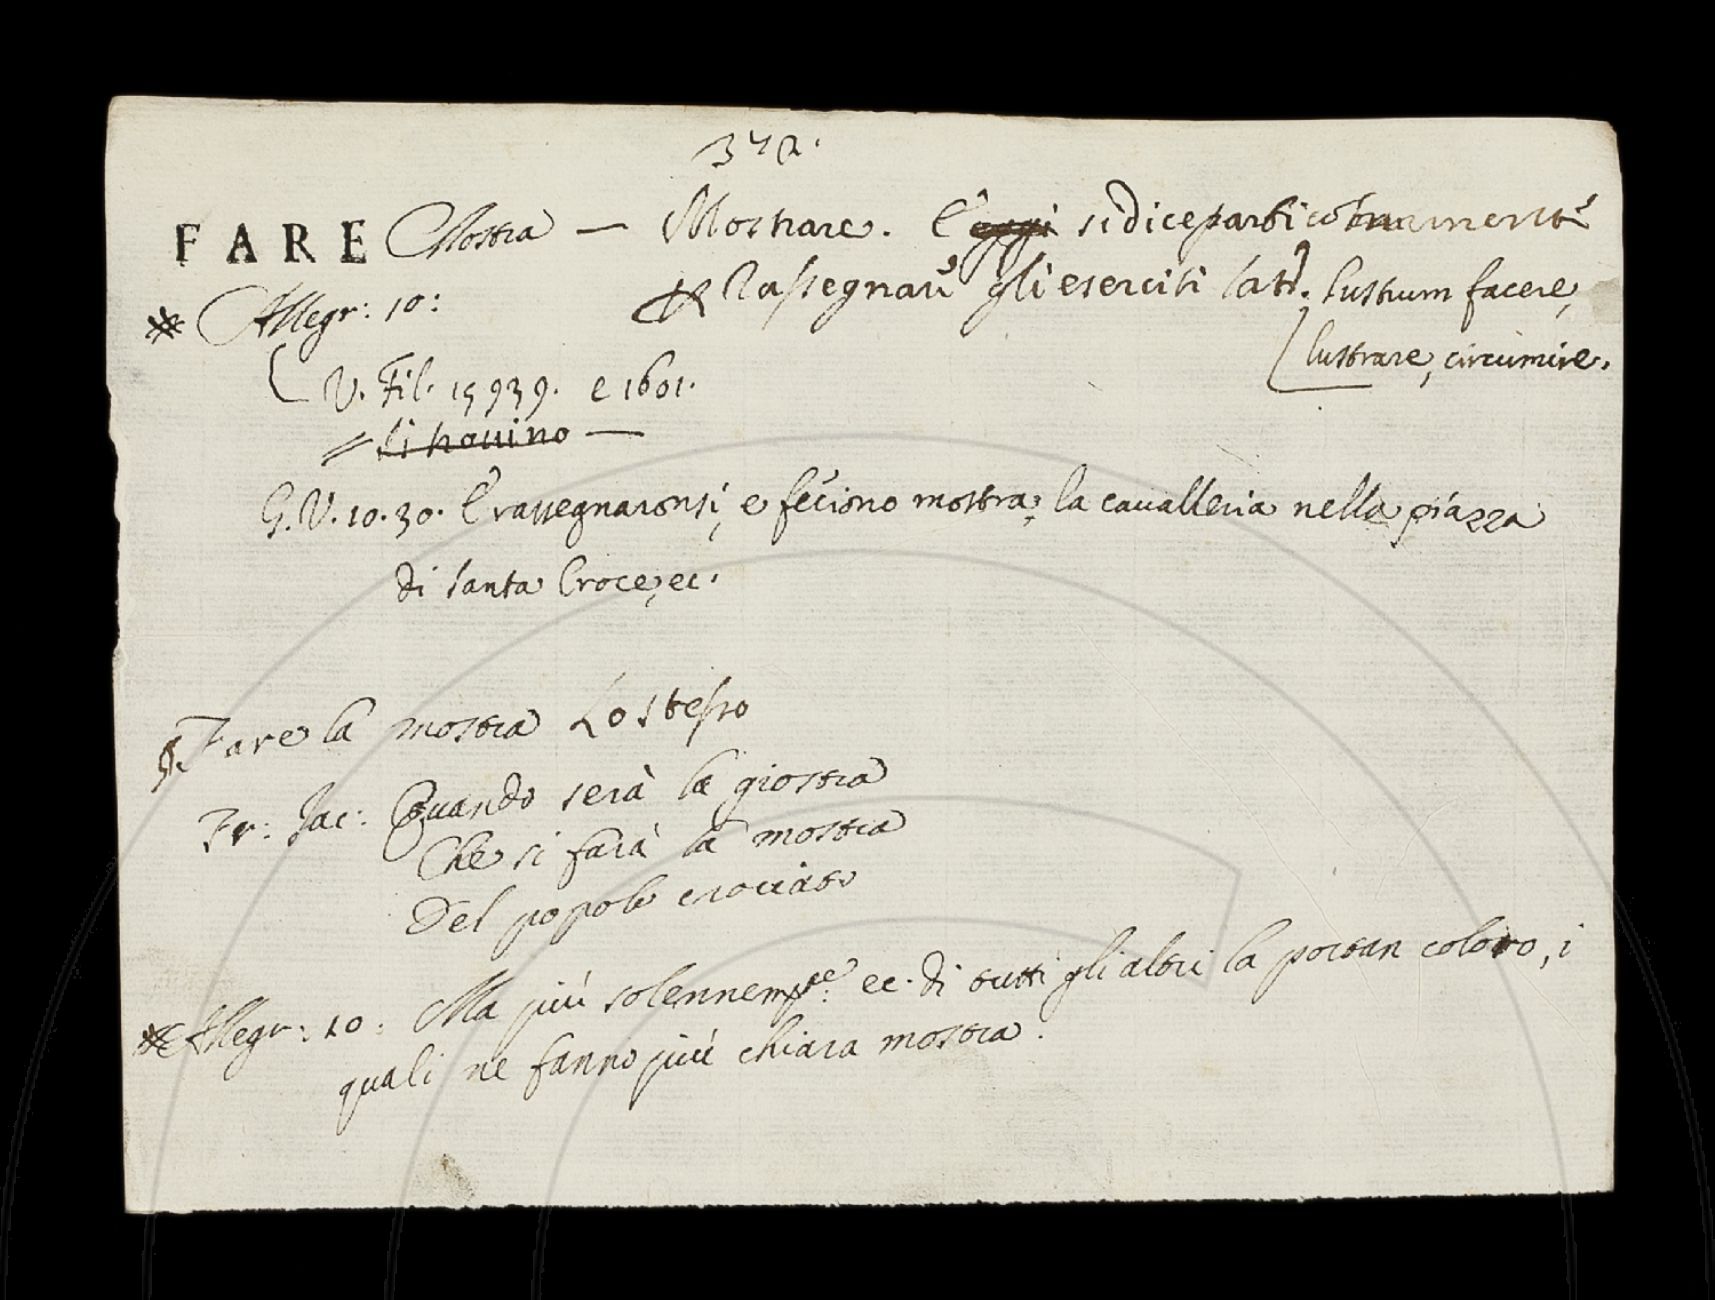 372.
FARE Mostra — Mostrare. E oggi si dice particolarmente
Rassegnar gli eserciti lat. lustrum facere,
lustrare, circumire.
* Allegr: 10:
V. Fil. 15939. e 1601.
G. V. 10. 30. E rassegnaronsi, e feciono mostra, la cavalleria nella piazza
di Santa Croce, ec.
§. Fare la mostra Lo stesso
Fr: Jac: Quando serà la giostra
Che si farà la mostra
Del popolo crociato
* Allegr: 10: Ma più solennemte: ec. di tutti gli altri la portan coloro, i
quali ne fanno più chiara mostra.